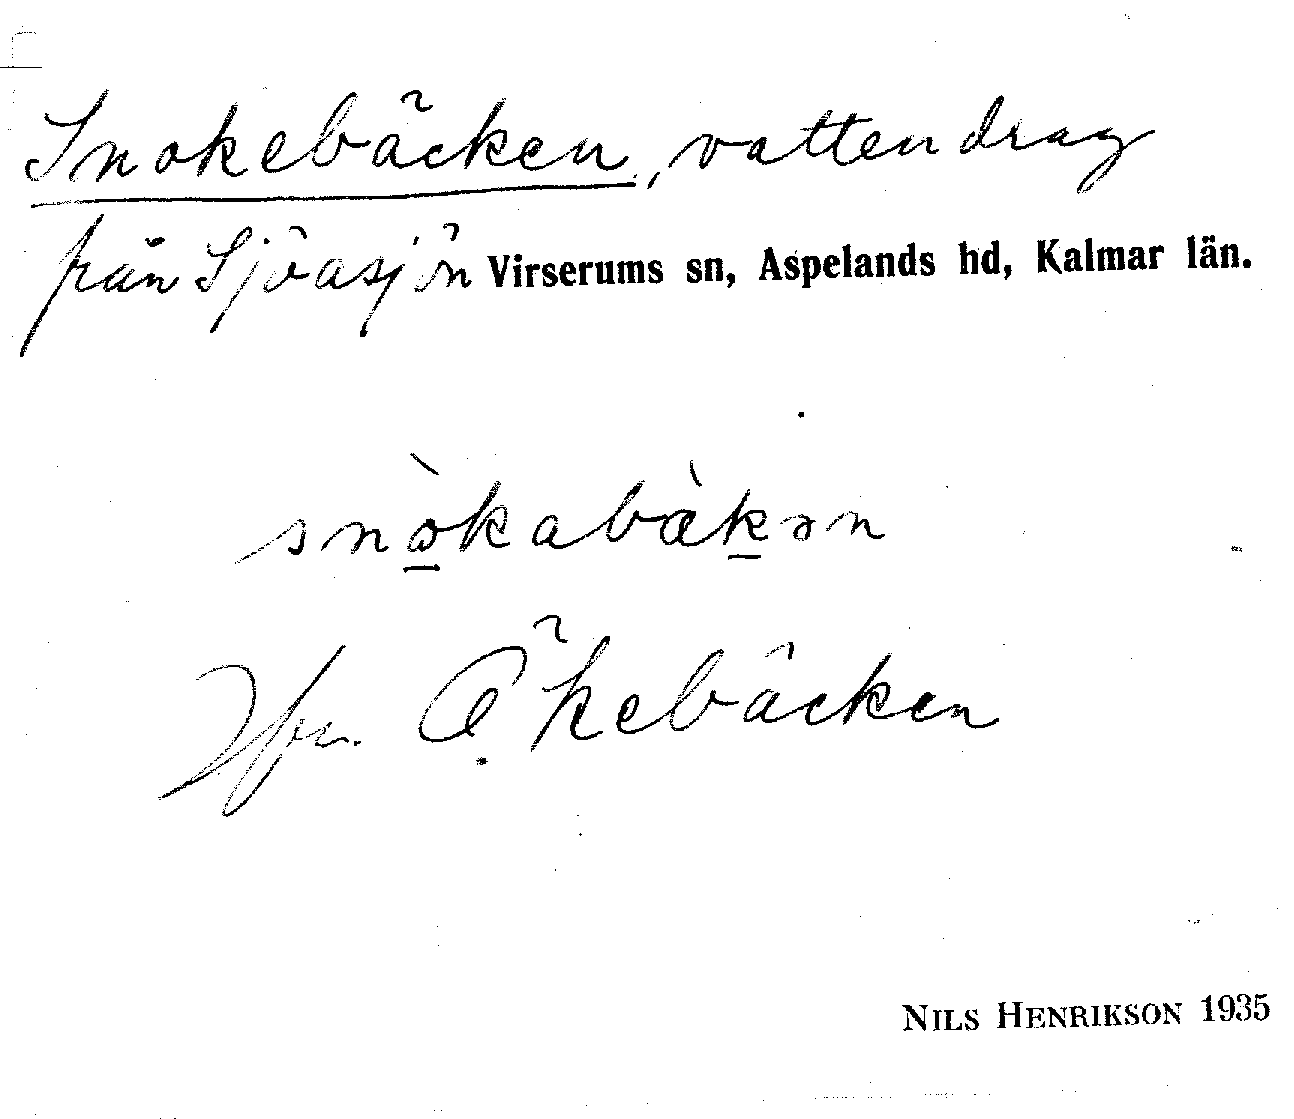 Snokebäcken, vattendrag
från Sjöasjön Virserums sn, Aspelands hd, Kalmar län.
snòkabæ̀kən
Jfr. Ökebäcken
NILS HENRIKSON 1935